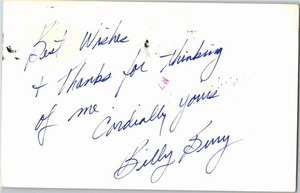 Best Wishes
+ Thanks for thinking
of me
Cordially yours
Billy Berry